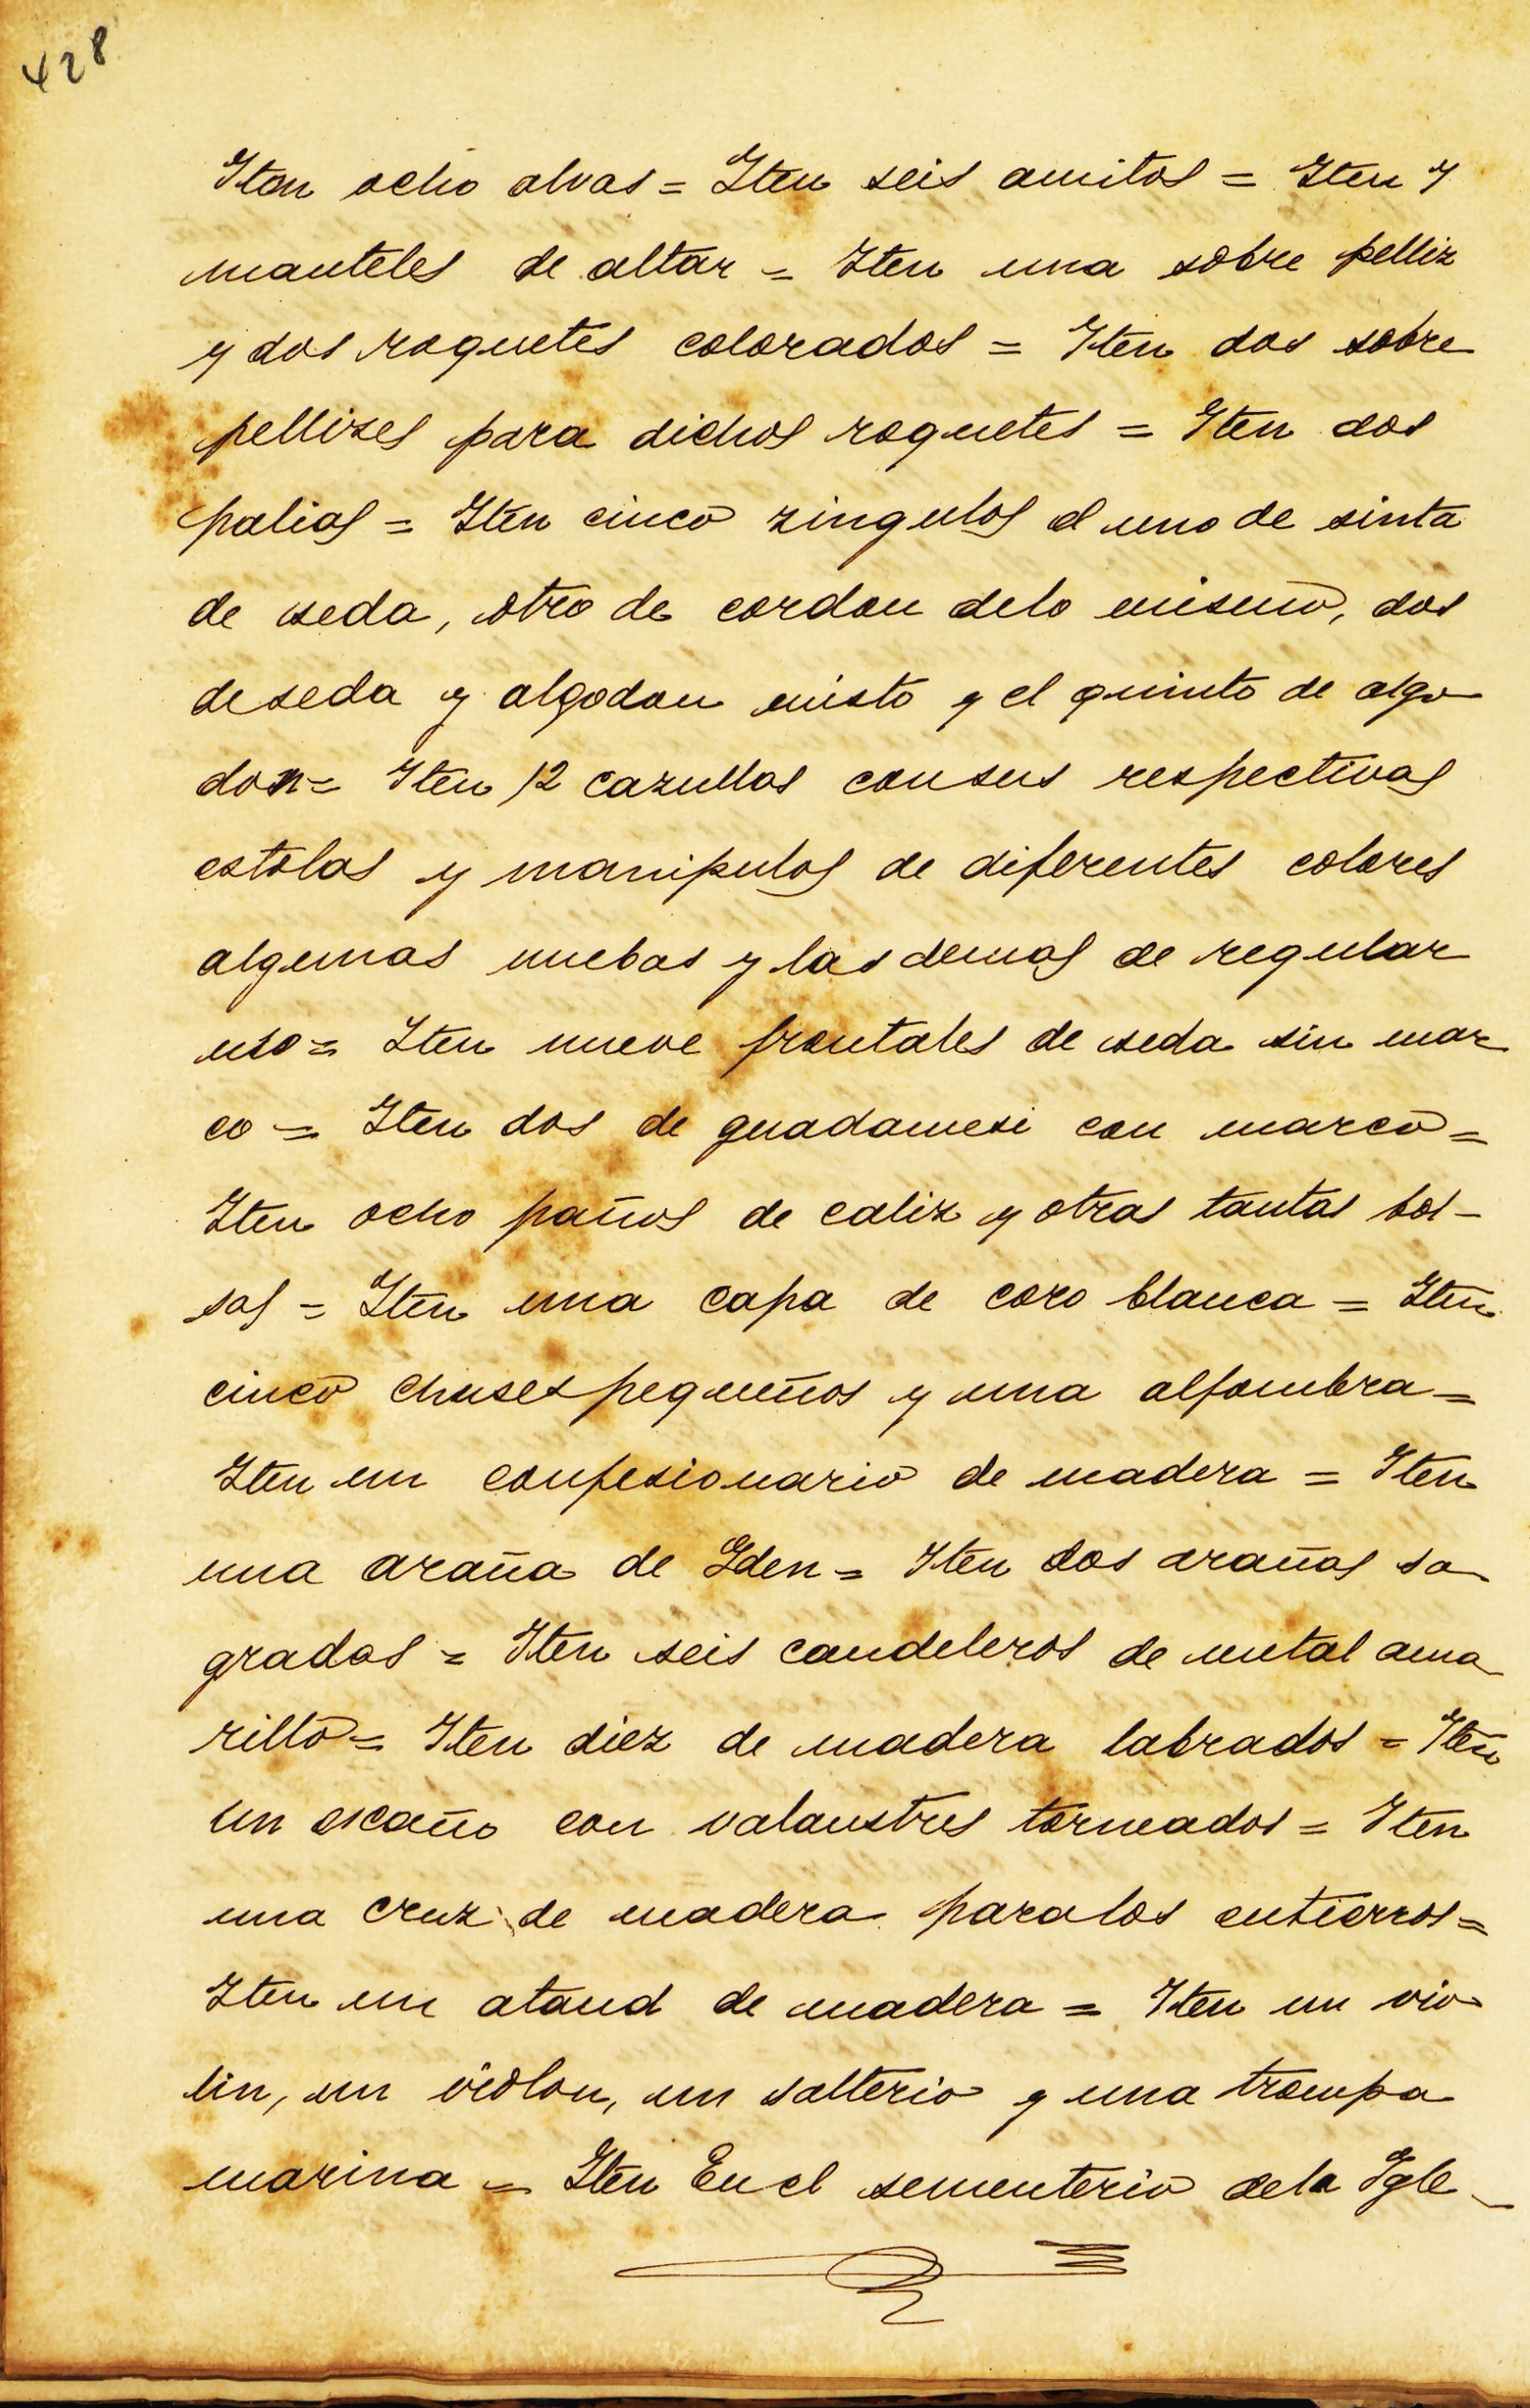 428
Iten ocho alvas = Iten seis amitos = Iten 7
manteles de altar = Iten una sobre pelliz
y dos roquetes colorados = Iten dos sobre
pellizes para dichos roquetes = Iten dos
palios = Iten cinco zingulos el uno de sinta
de seda, otro de cordon delo mismo, dos
de seda y algodon misto y el quinto de algo
don = Iten 12 cazullas consus respectivas
estolas y manipulos de diferentes colores
algunas nuebas y las demas de regular
uso = Iten nueve frontales de seda sin mar
co = Iten dos de guadamesi con marco =
Iten ocho paños de caliz y otras tantas bol-
sas = Iten una capa de coro blanca = Iten
cinco chuses pequeños y una alfombra =
Iten un confesionario de madera = Iten
una araña de Iden = Iten dos arañas sa
gradas = Iten seis candeleros de metal ama
rillo = Iten diez de madera labrados = Iten
un escaño con valaustres torneados = Iten
una cruz de madera para los entierros =
Iten un ataud de madera = Iten un vio
lin, un violon, un salterio y una trompa
marina = Iten En el sementerio dela Igle